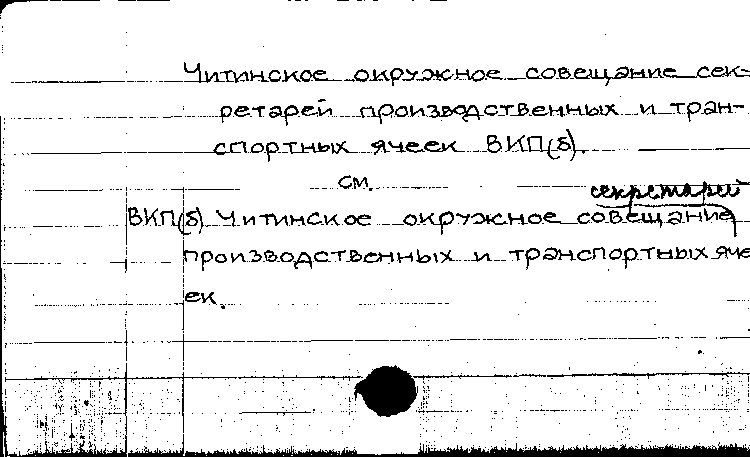 Читинское окружное совещание сек-
ретарей производственных и тран-
спортных ячеек ВКП(б).
см.
секретарей
ВКП(б) Читинское окружное совещание
производственных и транспортных яче
ек.